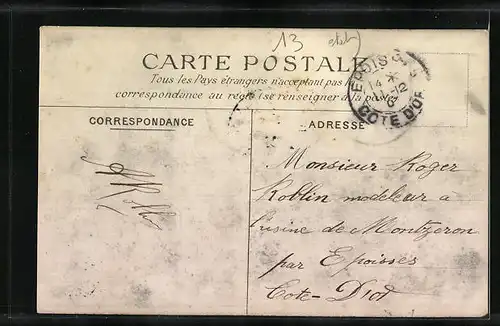 13
CARTE POSTALE
Tous les Pays étrangers n'acceptant pas la
correspondance au recto (se renseigner à la poste)
EPOISSES
14
12
COTE D'OR
CORRESPONDANCE
ADRESSE
Monsieur Roger
Roblin modeleur à
l'usine de Montzeron
par Epoisses
Cote-D'or